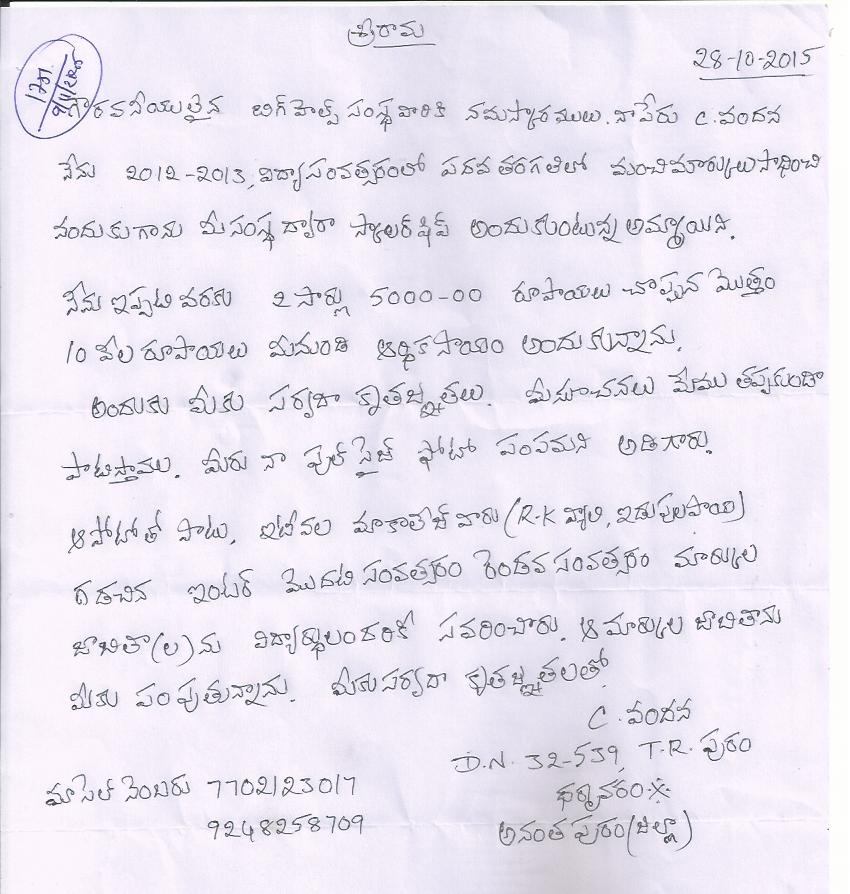 శ్రీరామ
28-10-2015
గౌరవనీయులైన బిగ్ హెల్ప్ సంస్థ వారికి నమస్కారములు. నా పేరు C. వందన
నేను 2012-2013, విద్యా సంవత్సరంలో పదవ తరగతిలో మంచి మార్కులు సాధించి
నందుకుగాను మీ సంస్థ ద్వారా స్కాలర్ షిప్ అందుకుంటున్న అమ్మాయిని.
నేను ఇప్పటి వరకు 2 సార్లు 5000-00 రూపాయలు చొప్పున మొత్తం
10 వేల రూపాయలు మీనుండి ఆర్థిక సాయం అందుకున్నాను.
అందుకు మీకు సర్వదా కృతజ్ఞతలు. మీ సూచనలు మేము తప్పకుండా
పాటిస్తాము. మీరు నా ఫుల్ సైజ్ ఫోటో పంపమని అడిగారు.
ఆ ఫోటోతో పాటు, ఇటీవల మా కాలేజ్ వారు (R.K వ్యాలి, ఇడుపులపాయ)
గడచిన ఇంటర్ మొదటి సంవత్సరం రెండవ సంవత్సరం మార్కుల
జాబితా(ల)ను విద్యార్థులందరికీ సవరించారు. ఆ మార్కుల జాబితాను
మీకు పంపుతున్నాను. మీకు సర్వదా కృతజ్ఞతలతో
C. వందన
D.N. 32-539, T.R. పురం
ధర్మవరం.X.
అనంతపురం(జిల్లా)
మా సెల్ నెంబరు 7702123017
9248258709